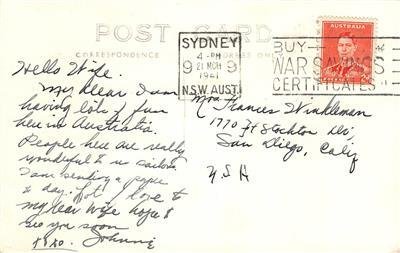 POST CARD
CORRESPONDENCE
SYDNEY
4 - PM
21 MCH
1941
9 9
N.S.W. AUST.
AUSTRALIA
BUY
WAR SAVINGS
CERTIFICATES
Hello Wife.
My dear I am
having lots of fun
here in Australia.
People here are really
wonderful to us sailors
I am sending a paper
to day. Lot love to
my dear wife hope to
see you soon
Johnnie
Mrs Frances Winkleman
1770 Ft Stockton Dr,
San Diego, Calif
U.S.A